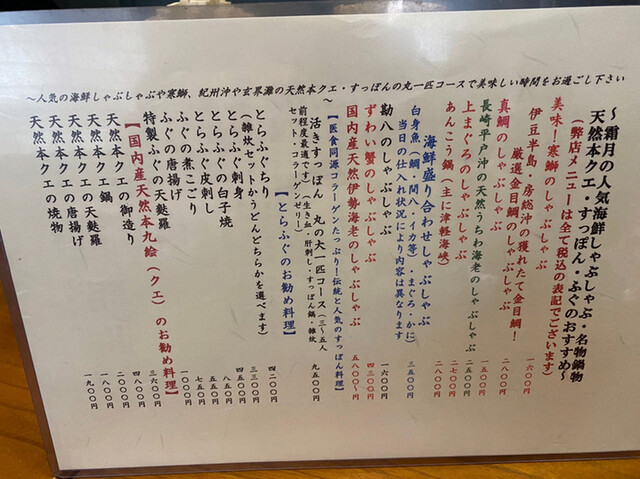 ～人気の海鮮しゃぶしゃぶや寒鰤、紀州沖や玄界灘の天然本クエ・すっぽんの丸一匹コースで美味しい時間をお過ごし下さい～
～霜月の人気海鮮しゃぶしゃぶ・名物鍋物
天然本クエ・すっぽん・ふぐのおすすめ～
(弊店メニューは全て税込の表記でございます)
美味！寒鰤のしゃぶしゃぶ 一六〇〇円
伊豆半島・房総沖の獲れたて金目鯛！
厳選金目鯛のしゃぶしゃぶ 二八〇〇円
真鯛のしゃぶしゃぶ 一五〇〇円
長崎平戸沖の天然うちわ海老のしゃぶしゃぶ
上まぐろのしゃぶしゃぶ 二七〇〇円
あんこう鍋（主に津軽海峡） 二八〇〇円
海鮮盛り合わせしゃぶしゃぶ 三五〇〇円
白身魚（鯛・間八・イカ等）・まぐろ・かに）
当日の仕入れ状況により内容は異なります
勘八のしゃぶしゃぶ 一六〇〇円
ずわい蟹のしゃぶしゃぶ 四三〇〇円
国内産天然伊勢海老のしゃぶしゃぶ 五八〇〇円～
【医食同源コラーゲンたっぷり！伝統と人気のすっぽん料理】
活きすっぽん 丸の大一匹コース（三～五人
前程度最適です）（生き血・肝刺し・すっぽん鍋・雑炊
セット・コラーゲンゼリー） 九五〇〇円
【とらふぐのお勧め料理】
とらふぐちり 四二〇〇円
（雑炊セットかうどんどちらかを選べます）
とらふぐ刺身 三三〇〇円
とらふぐの白子焼 四五〇〇円
とらふぐ皮刺し 八五〇円
ふぐの煮こごり 五五〇円
ふぐの唐揚げ 七五〇円
特製ふぐの天麩羅 一五〇〇円
【国内産天然本九絵（クエ）のお勧め料理】
天然本クエの御造り 三六〇〇円
天然本クエ鍋 四八〇〇円
天然本クエの天麩羅 二〇〇〇円
天然本クエの唐揚げ 一八〇〇円
天然本クエの焼物 一九〇〇円